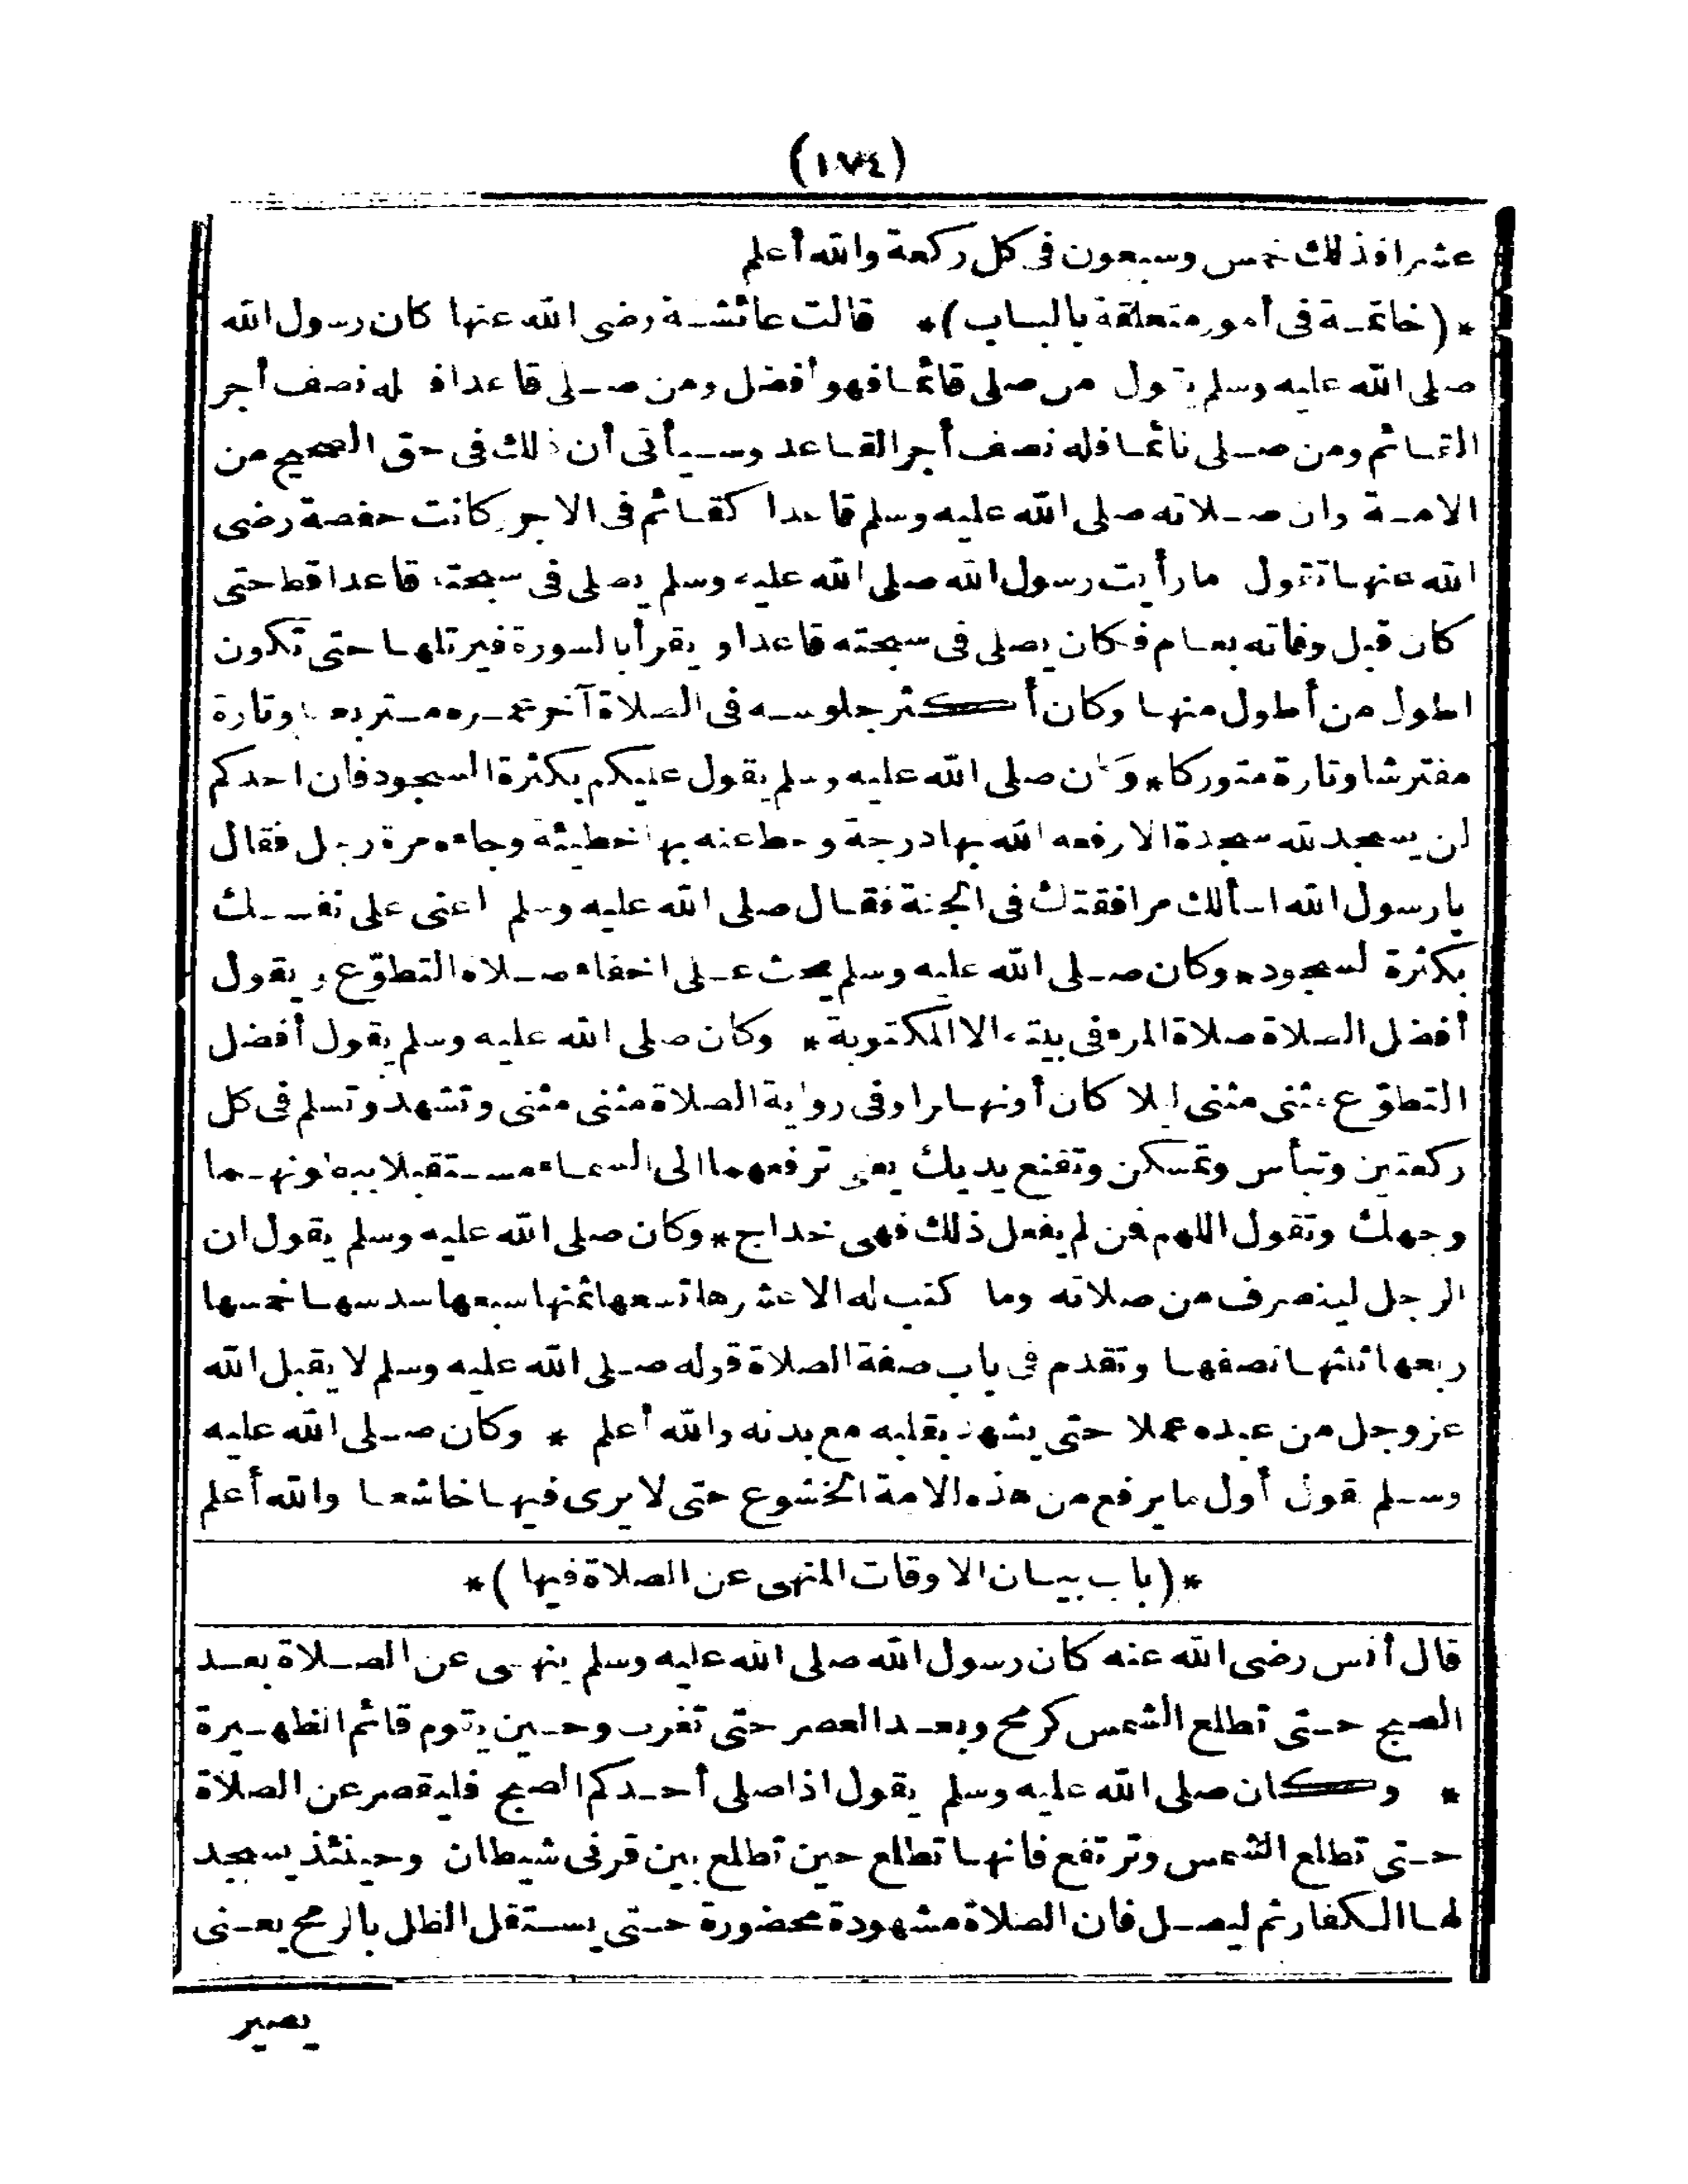 (١٧٤)
عشرا فذلك خمس وسبعون فى كل ركعة والله أعلم
*(خاتمة فى أمور متعلقة بالباب)* قالت عائشة رضى الله عنها كان رسول الله
صلى الله عليه وسلم يقول من صلى قائما فهو أفضل ومن صلى قاعدا فله نصف أجر
القائم ومن صلى نائما فله نصف أجر القاعد وسيأتى أن ذلك فى حق الصحيح من
الامة وان صلاته صلى الله عليه وسلم قاعدا كقائم فى الاجر وكانت حفصة رضى
الله عنها تقول ما رأيت رسول الله صلى الله عليه وسلم يصلى فى سبحته قاعدا قط حتى
كان قبل وفاته بعام فكان يصلى فى سبحته قاعدا و يقرأ بالسورة فيرتلها حتى تكون
اطول من أطول منها وكان أكثر جلوسه فى الصلاة آخر عمره متربعا وتارة
مفترشا وتارة متوركا* وكان صلى الله عليه وسلم يقول عليكم بكثرة السجود فان احدكم
لن يسجد لله سجدة الا رفعه الله بها درجة وحط عنه بها خطيئة وجاءه مرة رجل فقال
يا رسول الله اسألك مرافقتك فى الجنة فقال صلى الله عليه وسلم اعنى على نفسك
بكثرة السجود* وكان صلى الله عليه وسلم يحث على اخفاء صلاة التطوّع و يقول
أفضل الصلاة صلاة المرء فى بيته الا المكتوبة* وكان صلى الله عليه وسلم يقول أفضل
التطوّع مثنى مثنى ليلا كان أو نهارا وفى رواية الصلاة مثنى مثنى وتشهد وتسلم فى كل
ركعتين وتبأس وتمسكن وتقنع يديك يعنى ترفعهما الى السماء مستقبلا ببطونهما
وجهك وتقول اللهم فمن لم يفعل ذلك فهى خداج* وكان صلى الله عليه وسلم يقول ان
الرجل لينصرف من صلاته وما كتب له الا عشرها تسعها ثمنها سبعها سدسها خمسها
ربعها ثلثها نصفها وتقدم فى باب صفة الصلاة قوله صلى الله عليه وسلم لا يقبل الله
عز وجل من عبده عملا حتى يشهد بقلبه مع بدنه والله أعلم * وكان صلى الله عليه
وسلم يقول أول ما يرفع من هذه الامة الخشوع حتى لا يرى فيها خاشعا والله أعلم
*(باب بيان الاوقات المنهى عن الصلاة فيها)*
قال أنس رضى الله عنه كان رسول الله صلى الله عليه وسلم ينهى عن الصلاة بعد
الصبح حتى تطلع الشمس كرمح وبعد العصر حتى تغرب وحين يقوم قائم الظهيرة
* وكان صلى الله عليه وسلم يقول اذا صلى أحدكم الصبح فليقصر عن الصلاة
حتى تطلع الشمس وترتفع فانها تطلع حين تطلع بين قرنى شيطان وحينئذ يسجد
لها الكفار ثم ليصل فان الصلاة مشهودة محضورة حتى يستقل الظل بالرمح يعنى
يصير